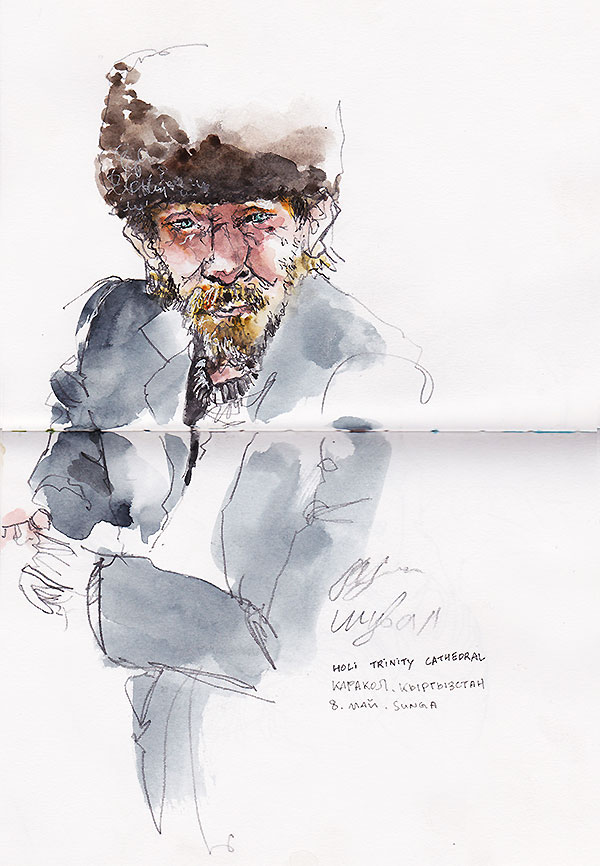 шувал
HOLi TRiNiTY CATHEDRAL
КАРАКОЛ. КЫРГЫЗСТАН
8. МАЙ. SUNGA